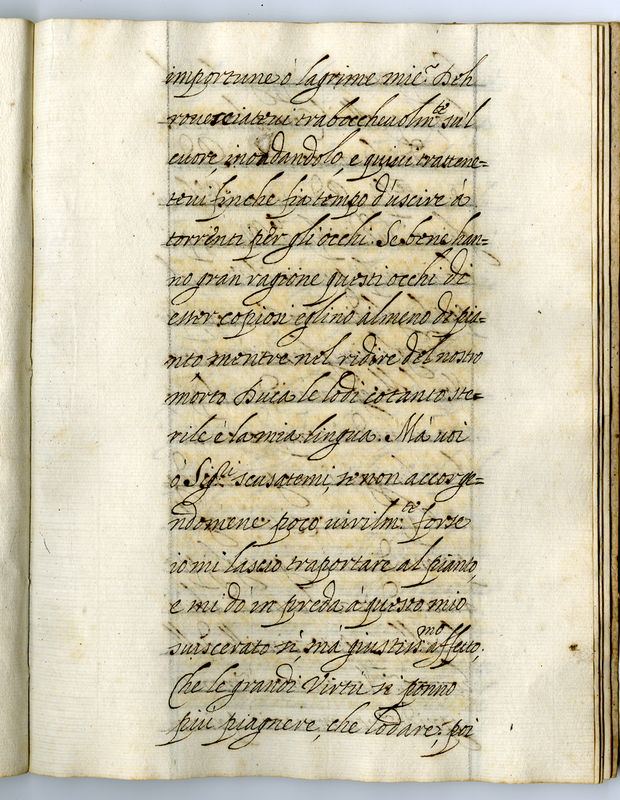 importune ò lagrime mie? Deh
rouersciateui traboccheuolm.te sù'l
cuore, inondandolo, e quiui trattene=
teui finche sia tempo d'uscire à
torrenti per gli occhi. Se bene han=
no gran ragione questi occhi di
esser copiosi eglino almeno di pia=
nto mentre nel ridire del nostro
morto Duca le lodi cotanto ste=
rile è la mia lingua. Mà uoi
ò Sig.ri scusatemi, se non accorge=
ndomene poco uirilm.te forse
io mi lascio traportare al pianto,
e mi dò in preda à questo mio
suiscerato sì, mà giustiss.mo affetto.
Che le grandi Virtù si ponno
più piagnere, che lodare; poi